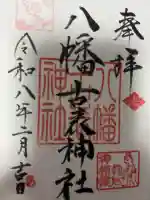 奉拝
八幡古表神社
令和八年二月吉日
八幡
神社